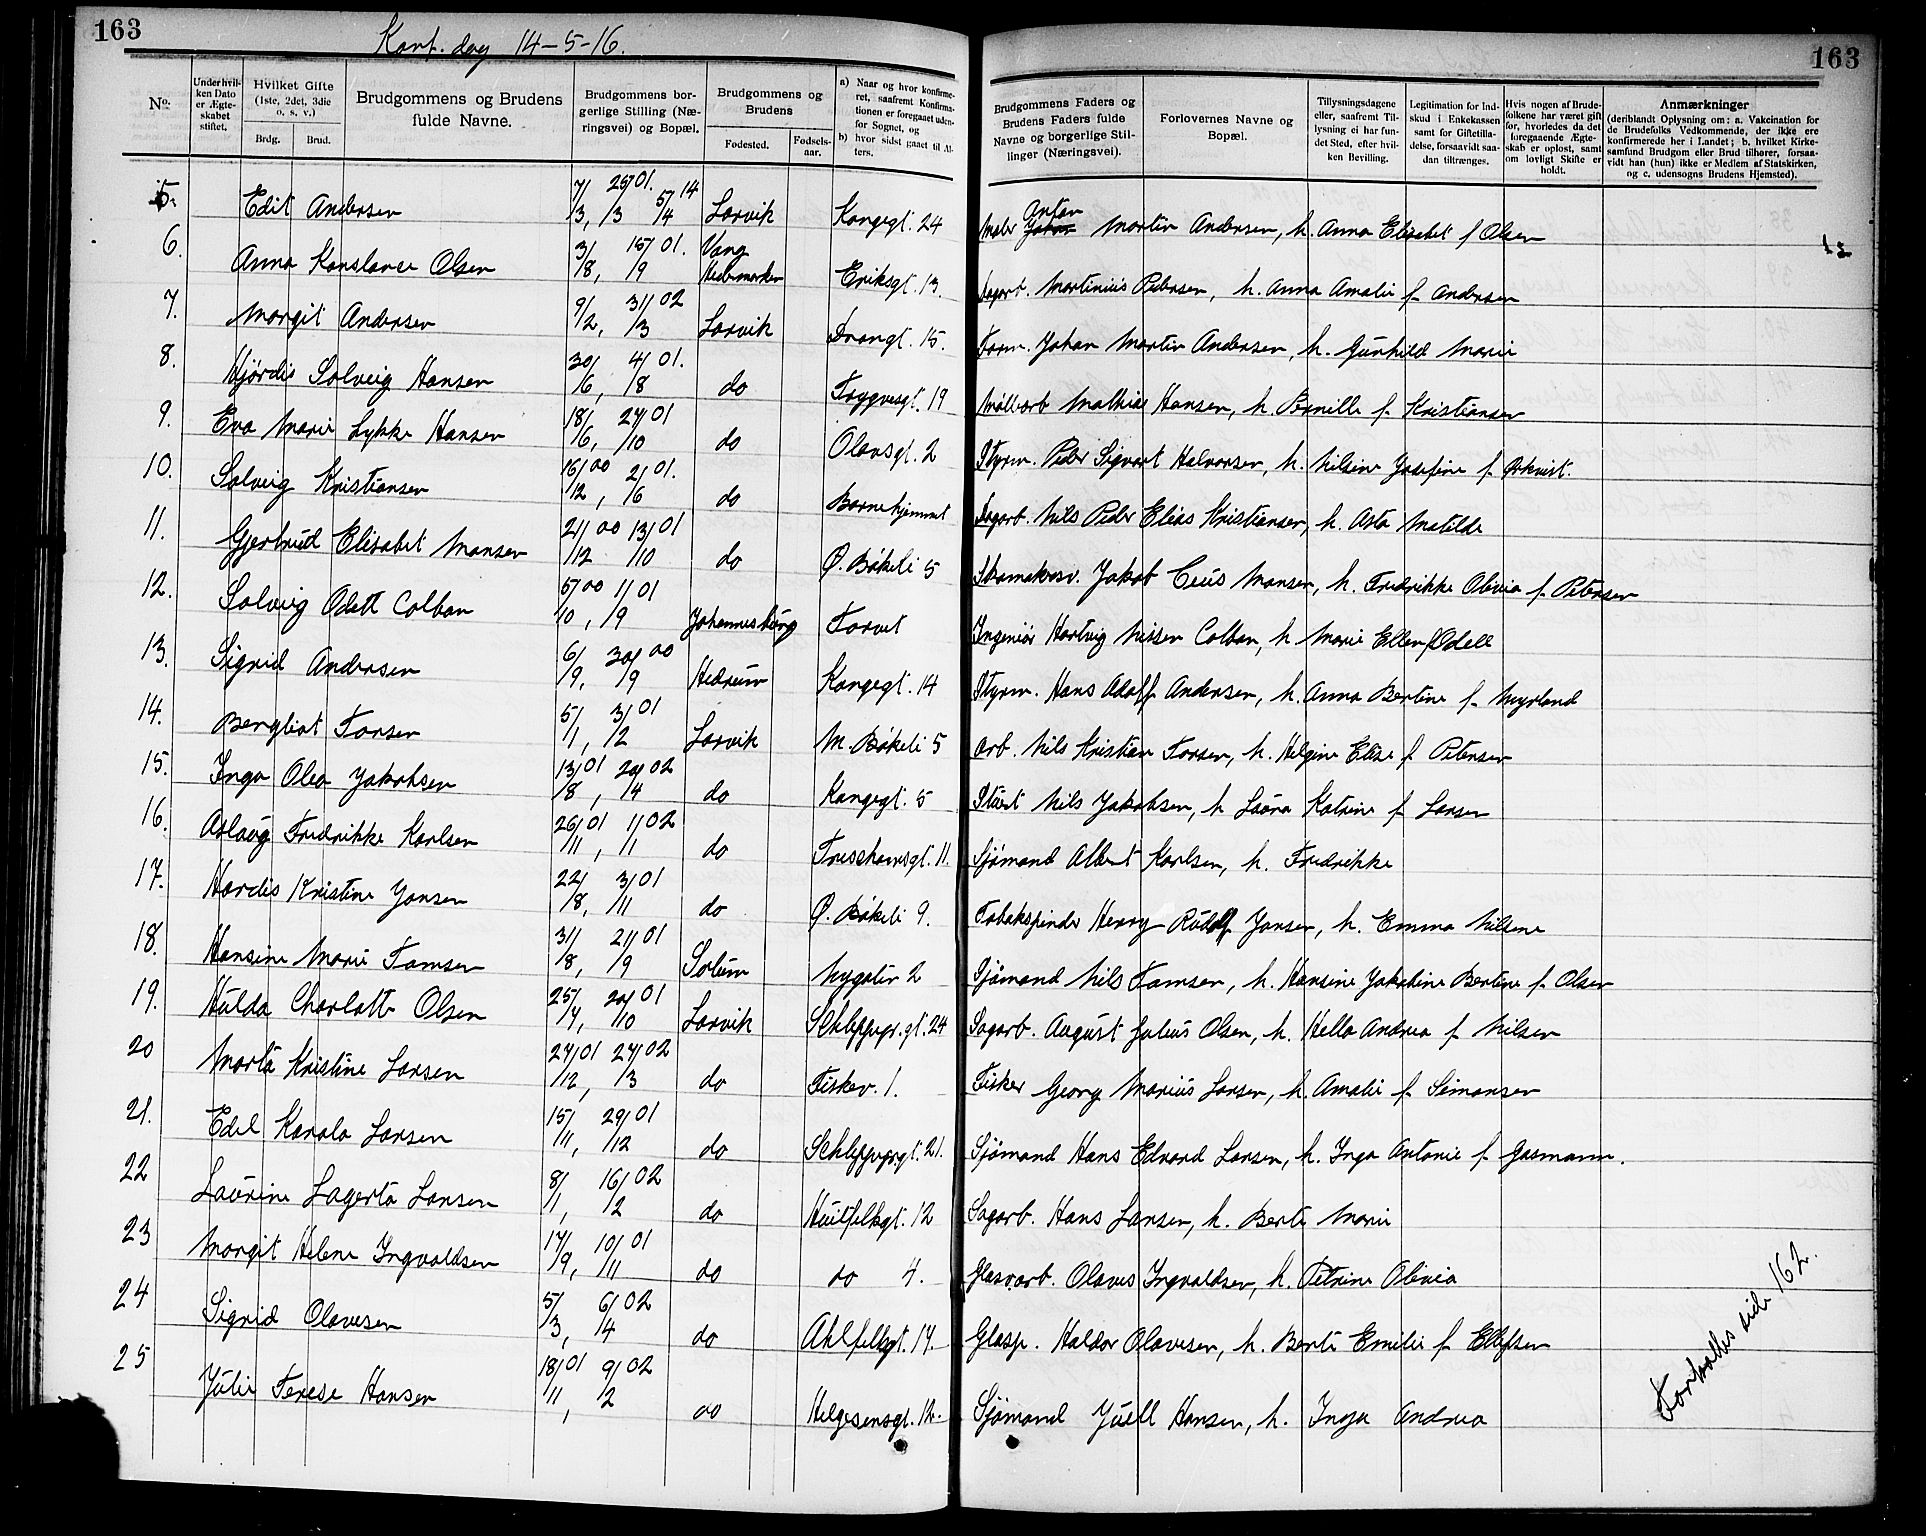 163
Konf. dag 14-5-16.
163
No.
Under hvilken Dato er Ægteskabet stiftet.
Hvilket Gifte (1ste, 2det, 3die o. s. v.)
Brdg.
Brud.
Brudgommens og Brudens fulde Navne.
Brudgommens borgerlige Stilling (Næringsvei) og Bopæl.
Brudgommens og Brudens
Fødested.
Fødselsaar.
a) Naar og hvor konfirmeret, saafremt Konfirmationen er foregaaet udenfor Sognet, og
b) hvor sidst gaaet til Alters.
Brudgommens Faders og Brudens Faders fulde Navne og borgerlige Stillinger (Næringsvei).
Forlovernes Navne og Bopæl.
Tillysningsdagene eller, saafremt Tillysning ei har fundet Sted, efter hvilken Bevilling.
Legitimation for Indskud i Enkekassen samt for Giftetilladelse, forsaavidt saadan tiltrænges.
Hvis nogen af Brudefolkene har været gift før, hvorledes da det foregaaende Ægteskab er opløst, samt om lovligt Skifte er holdt.
Anmærkninger
(deriblandt Oplysning om: a. Vakcination for de Brudefolks Vedkommende, der ikke ere konfirmerede her i Landet; b. hvilket Kirkesamfund Brudgom eller Brud tilhører, forsaavidt han (hun) ikke er Medlem af Statskirken, og c. udensogns Brudens Hjemsted).
5. Edit Andersen 7/3, 25/3 01. 5/4 14 Larvik Kongegt. 24 Maler Anton Martin Andersen, h. Anna Elisabet f Olsen
6. Anna Konstance Olsen 3/8, 15/9 01. Vang Hedemarken Eriksgt. 13. Sagarb. Martinius Pedersen, h. Anna Amalie f. Andersen
7. Margit Andersen 9/2, 31/3 02 Larvik Strangt. 15. Form. Johan Martin Andersen, h. Gunhild Marie
8. Hjørdis Solveig Hansen 30/6, 4/8 01. do Tryggvesgt. 19 Møllearb Mathias Hansen, h. Pernille f. Kristiansen
9. Eva Marie Lykke Hansen 18/6, 27/10 01 do Olavsgt. 2 Styrm. Peder Sigvart Halvorsen, h. Nilsine Josefine f.Ørkvist.
10. Solveig Kristiansen 16/12 00, 2/6 01. do Barnehjemmet Sagarb. Nils Peder Elias Kristiansen, h. Asta Matilde
11. Gjertrud Elisabet Monsen 21/12 00 13/10 01 do Ø. Bøkeli 5 Skomakersv. Jakob Ceus Monsen, h. Fredrikke Olivia f. Petersen
12. Solveig Odett Colban 5/10 00, 1/9 01 Johannesburg Torvet Ingeniør Hartvig Nissen Colban, h Marie Ellen f Odell
13. Sigrid Andersen 6/9, 30/9 00 Hedrum Kongegt. 14 Styrm. Hans Adolf Andersen, h. Anna Bertine f. Myrland
14. Bergliot Torsen 5/1, 3/2 01 Larvik M. Bøkeli 5 Arb. Nils Kristian Torsen, h. Helgine Elise f Petersen
15. Inga Olea Jakobsen 13/8 01, 20/4 02 do Kongegt. 5 Stuert Nils Jakobsen, h Laura Katrine f Larsen
16. Aslaug Fredrikke Karlsen 26/11 01, 1/1 02 do Treschowsgt. 11. Sjømand Albert Karlsen, h. Fredrikke
17. Hardis Kristine Jansen 22/8, 3/11 01 do Ø. Bøkeli 9. Tobakspinder Henry Rudolf Jansen, h. Emma Nilsine
18. Hansine Marie Tomsen 31/8, 21/9 01 Solum Nygaten 2 Sjømand Nils Tomsen, h. Hansine Jakobine Bertine f. Olsen
19. Hulda Charlotte Olsen 25/7, 20/10 01 Larvik Schleppgr.gt. 24 Sagarb. August Julius Olsen, h. Hella Andrea f Nilsen
20 Marta Kristine Larsen 27/12 01, 27/3 02 do Fiskev. 1. Fisker Georg Marius Larsen, h. Amalie f. Simonsen
21. Edel Karola Larsen 15/11, 29/12 01 do Schleppgr.gt. 21. Sjømand Hans Edvard Larsen, h. Inga Antonie f Gasmann.
22 Laurine Lagerta Larsen 8/1, 16/2 02 do Huitfeltgt. 12 Sagarb. Hans Larsen, h. Berte Marie
23 Margit Helene Ingvaldsen 17/9, 10/11 01 do do 4. Glasv.arb. Olaves Ingvaldsen, h. Petrine Olivia
24 Sigrid Olavesen 5/3, 6/4 02 do Ahlfeltgt. 14. Glasp. Haldor Olavesen, h. Berte Emilie f Ellefsen
25 Julie Terese Hansen 18/11 01, 9/2 02 do Helgesensgt. 12. Sjømand Juell Hansen, h. Inga Andrea
Fortsættes side 162.